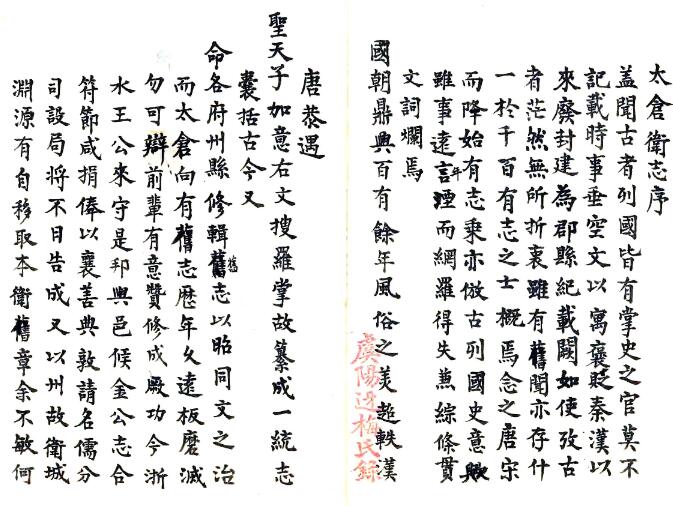 太倉衛志序
盖聞古者列國皆有掌史之官莫不
記載時事垂空文以寓褒貶秦漢以
來廢封建為郡縣紀載闕如使攷古
者茫然無所折衷雖有舊聞亦存什
一於千百有志之士概焉念之唐宋
而降始有志乘亦倣古列國史意歟
雖事遠言湮而網羅得失兼綜條貫
文詞斕焉
國朝鼎興百有餘年風俗之美超軼漢
虞陽邵梅氏錄
唐恭遇
聖天子加意右文搜羅掌故纂成一統志
囊括古今又
命各府州縣修輯舊志以昭同文之治
而太倉向有舊志歷年久遠板磨滅
勿可辯前輩有意贊修成厥功今浙
水王公來守是邦與邑候金公志合
符節咸捐俸以襄善典敦請名儒分
司設局將不日告成又以州故衛城
淵源有自移取本衛舊章余不敏何